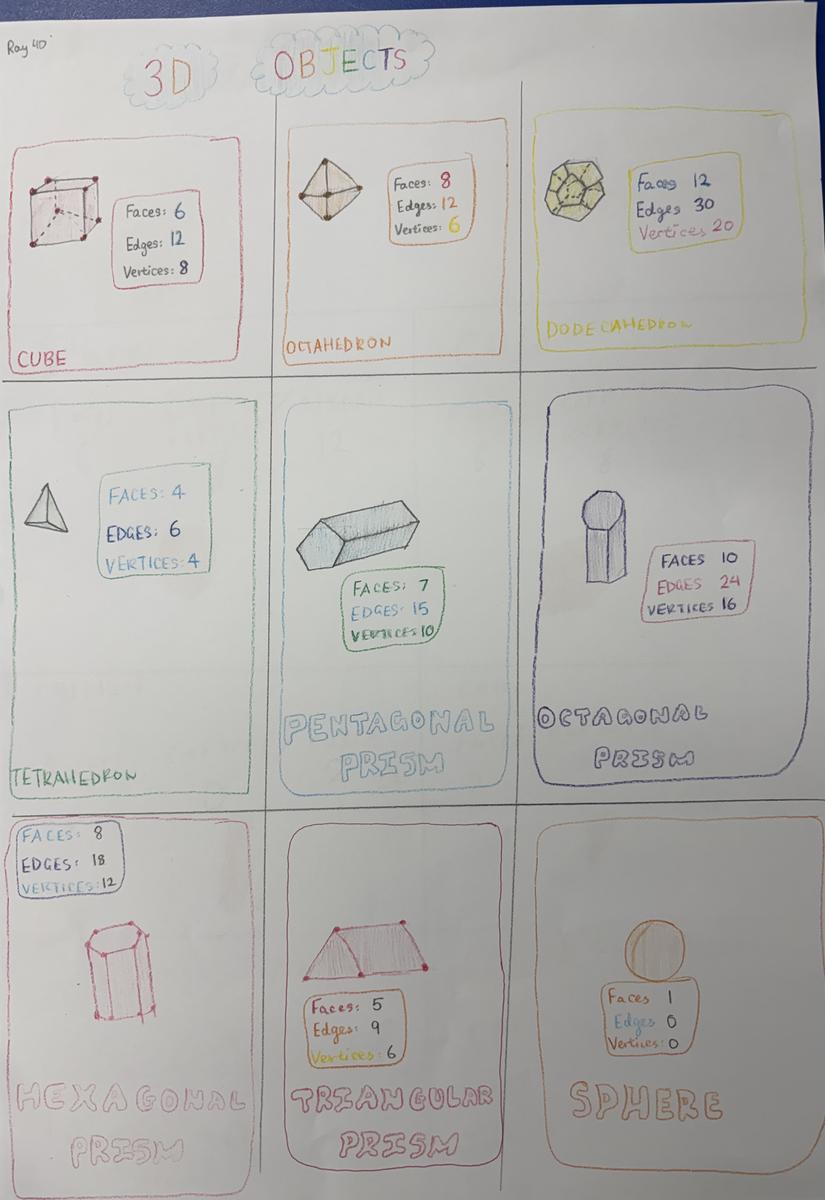 Ray 4D
3D OBJECTS
Faces: 6
Edges: 12
Vertices: 8
CUBE
Faces: 8
Edges: 12
Vertices: 6
OCTAHEDRON
Faces 12
Edges 30
Vertices 20
DODECAHEDRON
FACES: 4
EDGES: 6
VERTICES: 4
TETRAHEDRON
FACES: 7
EDGES: 15
VERTICES 10
PENTAGONAL
PRISM
FACES 10
EDGES 24
VERTICES 16
OCTAGONAL
PRISM
FACES: 8
EDGES: 18
VERTICES: 12
HEXAGONAL
PRISM
Faces: 5
Edges: 9
Vertices: 6
TRIANGULAR
PRISM
Faces 1
Edges 0
Vertices: 0
SPHERE